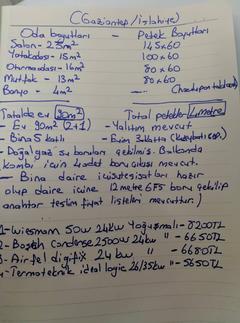 (Gaziantep/islahiye)
Oda boyutları - Petek Boyutları
Salon - 23m² 145x60
Yatakodası - 15m² 100x60
Oturmaodası - 16m² 80x60
Mutfak - 13m² 80x60
Banyo - 4m²
Totalde ev 90m² Total petekler 4 metre
- Ev 90m² (2+1) - Yalıtım mevcut
- Bina 5 katlı
- Doğal gaz su boruları çekilmiş. Balkonda
kombi için 4 adet boru çıkışı mevcut.
- Bina daire iç tesisatları hazır
olup daire içine 12 metre boru çekilip
anahtar teslim fiyat listeleri mevcuttur.)
1- Wiesmann 50w 24kw Yoğuşmalı - 8200TL
2- Bosch Condense 2500w 24kw " - 6650TL
3- Airfel digifix 24kw " - 6680TL
4- Termoteknik ideal logic 26/35kw " - 5650TL